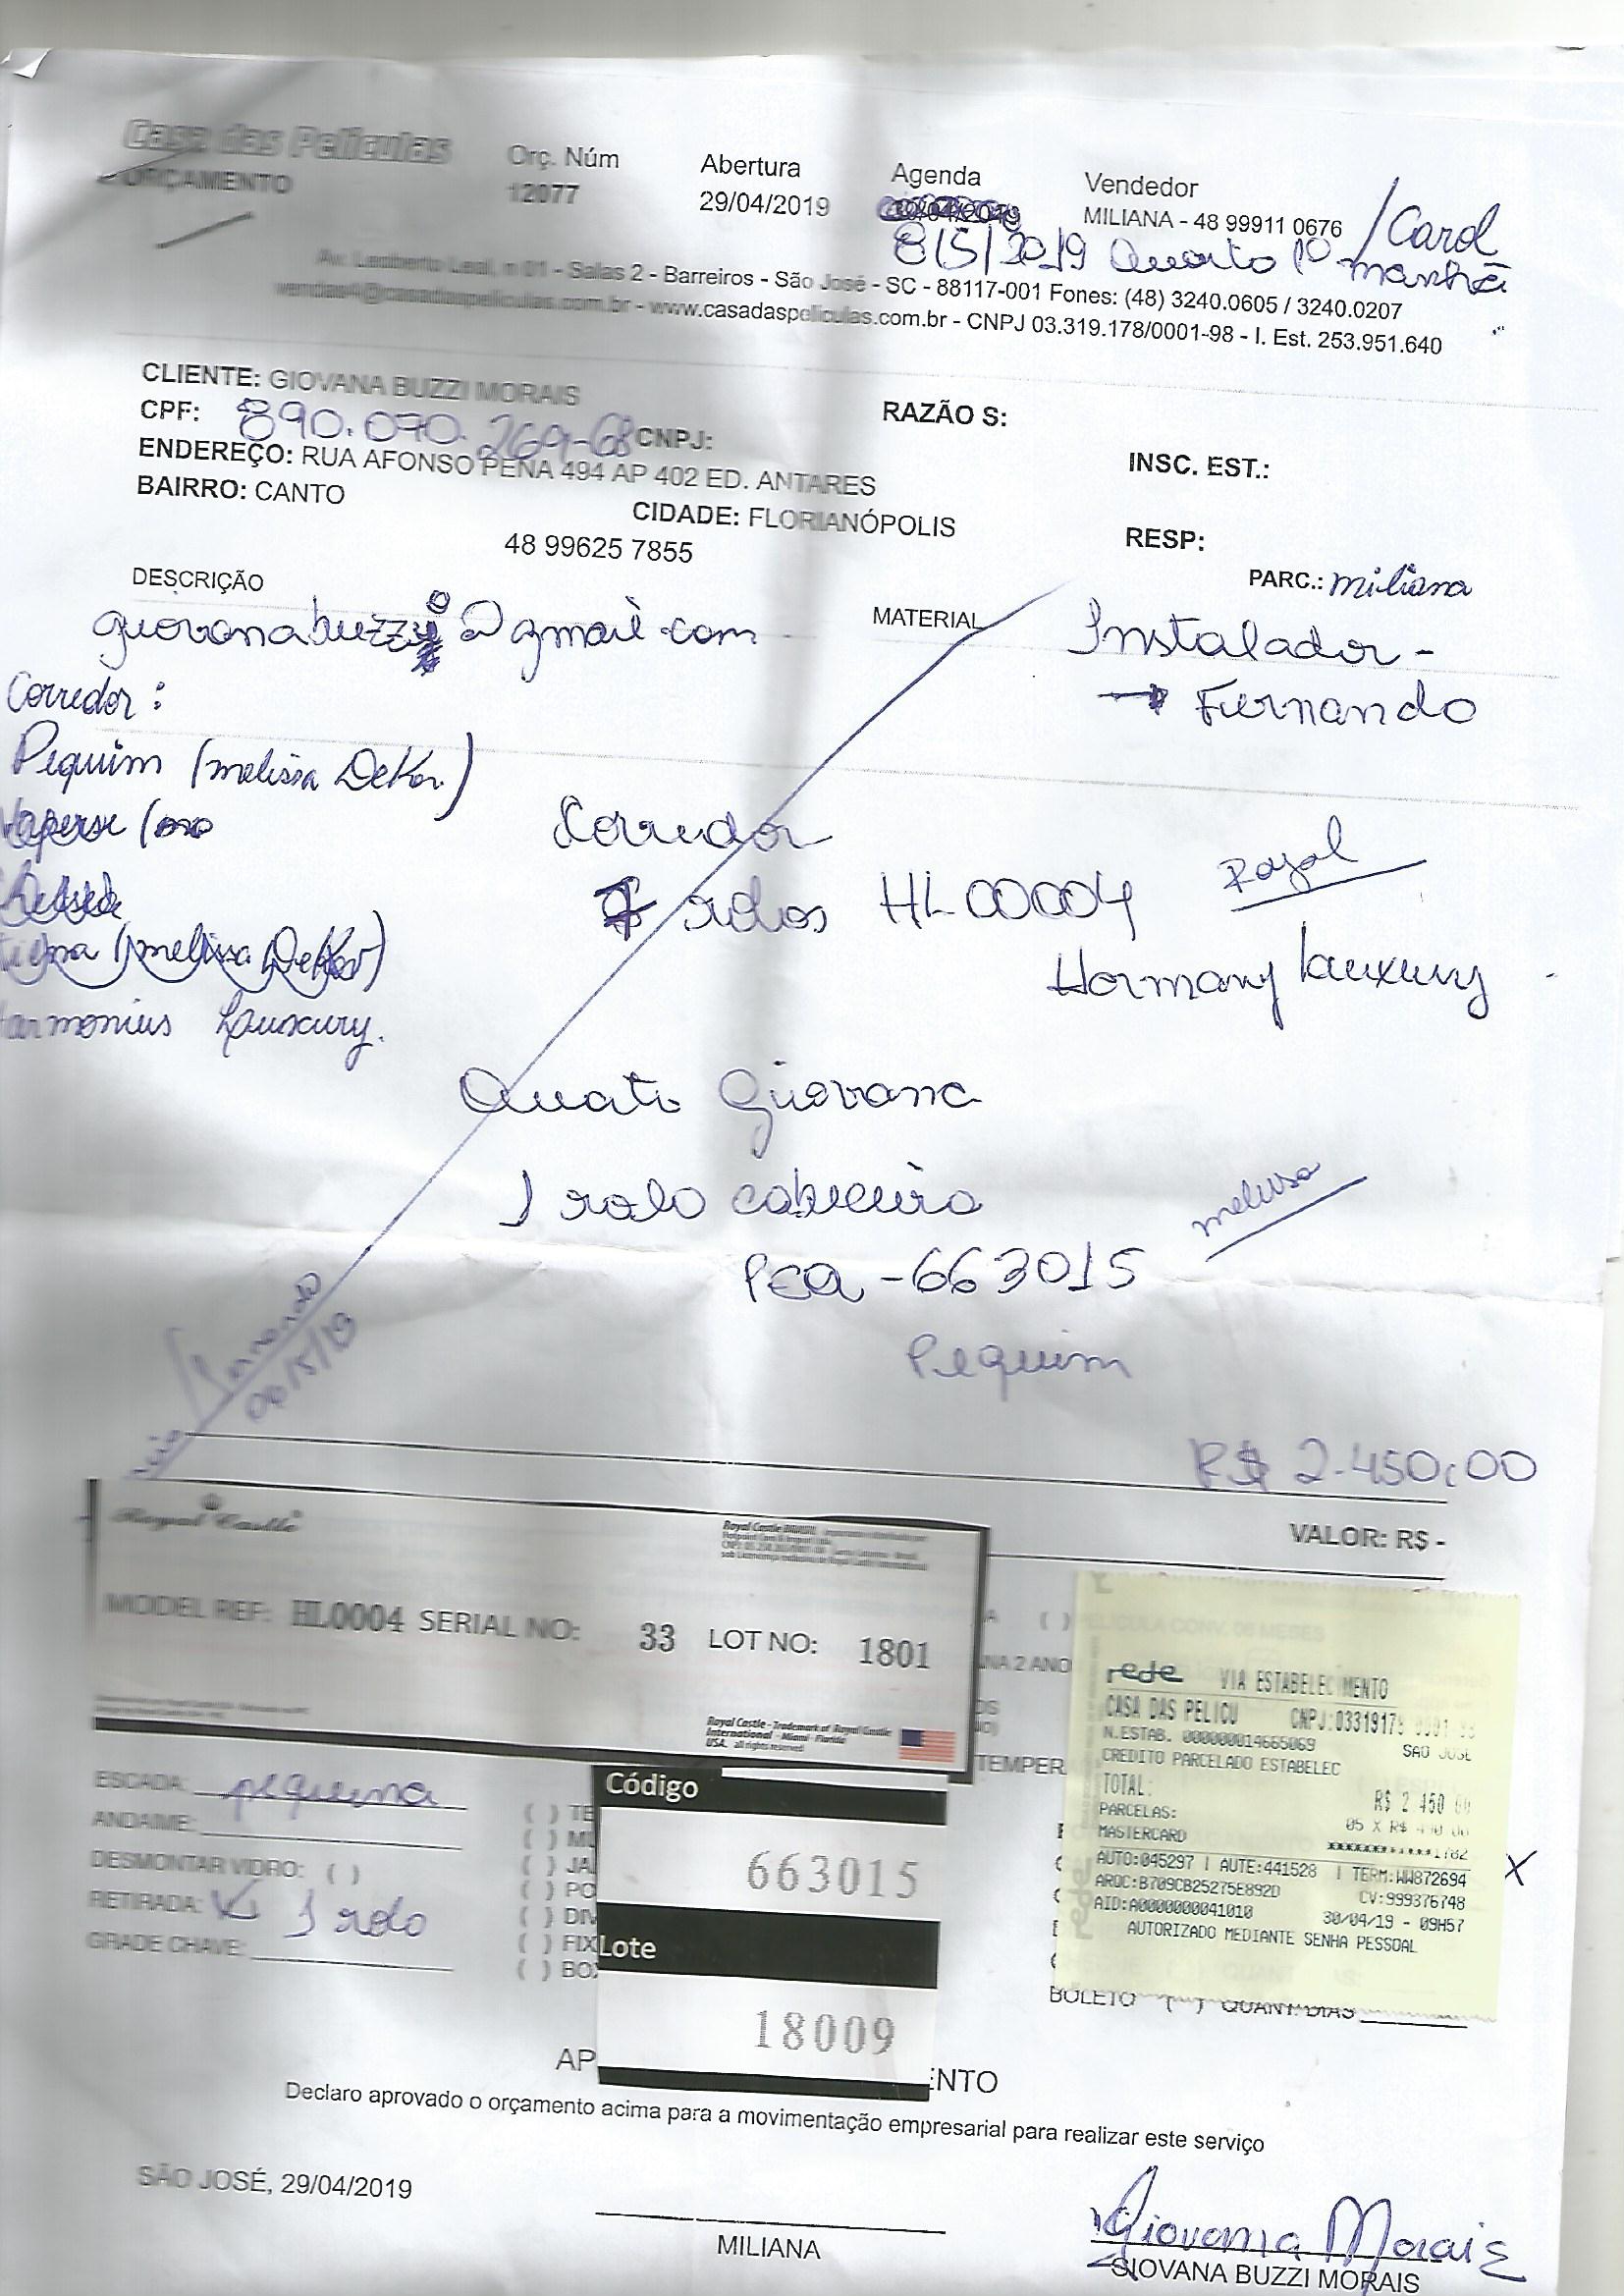 Casa das Películas
ORÇAMENTO
Orç. Núm
12077
Abertura
29/04/2019
Agenda
8/5/2019 Quarta 1º manhã
Vendedor
MILIANA - 48 99911 0676 / Carol
Av. Leoberto Leal, n 01 - Salas 2 - Barreiros - São José - SC - 88117-001 Fones: (48) 3240.0605 / 3240.0207
vendas4@casadaspeliculas.com.br - www.casadaspeliculas.com.br - CNPJ 03.319.178/0001-98 - I. Est. 253.951.640
CLIENTE: GIOVANA BUZZI MORAIS
RAZÃO S:
CPF: 890.070.269-68 CNPJ:
INSC. EST.:
ENDEREÇO: RUA AFONSO PENA 494 AP 402 ED. ANTARES
BAIRRO: CANTO
CIDADE: FLORIANÓPOLIS
RESP:
48 99625 7855
PARC.: Miliana
DESCRIÇÃO
MATERIAL
giovanabuzzi@gmail.com
Instalador -
→ Fernando
Corredor:
Pequim (Melissa DeKor.)
Corredor
7 rolos HL00004 Royal
Hormany Lauxury
Harmonius Lauxury.
Quarto Giovana
1 rolo cabeceira Melissa
PEQ - 663015
Pequim
R$ 2.450,00
VALOR: R$ -
Royal Castle
MODEL REF: HL0004 SERIAL NO: 33 LOT NO: 1801
Royal Castle - Trademark of Royal Castle
International - Miami - Florida
USA. all rights reserved
( ) PELÍCULA CONV. 06 MESES
NA 2 ANO
TEMPER
ESCADA: pequena
ANDAIME:
DESMONTAR VIDRO: ( )
RETIRADA: 1 rolo
GRADE CHAVE:
( ) TE
( ) MU
( ) JA
( ) PO
( ) DIV
( ) FIX
( ) BOX
Código
663015
Lote
18009
rede VIA ESTABELECIMENTO
CASA DAS PELICU CNPJ:03319178 0001 98
N.ESTAB. 000000014665069 SAO JOSE
CREDITO PARCELADO ESTABELEC
TOTAL: R$ 2 450 00
PARCELAS: 05 X R$ 490 00
MASTERCARD ************1782
AUTO:045297 | AUTE:441528 | TERM:WW872694
ARQC:B709CB25275E892D CV:999376748
AID:A0000000041010 30/04/19 - 09H57
AUTORIZADO MEDIANTE SENHA PESSOAL
X
BOLETO ( ) QUANT. DIAS
AP
ENTO
Declaro aprovado o orçamento acima para a movimentação empresarial para realizar este serviço
SÃO JOSÉ, 29/04/2019
MILIANA
Giovana Morais
GIOVANA BUZZI MORAIS